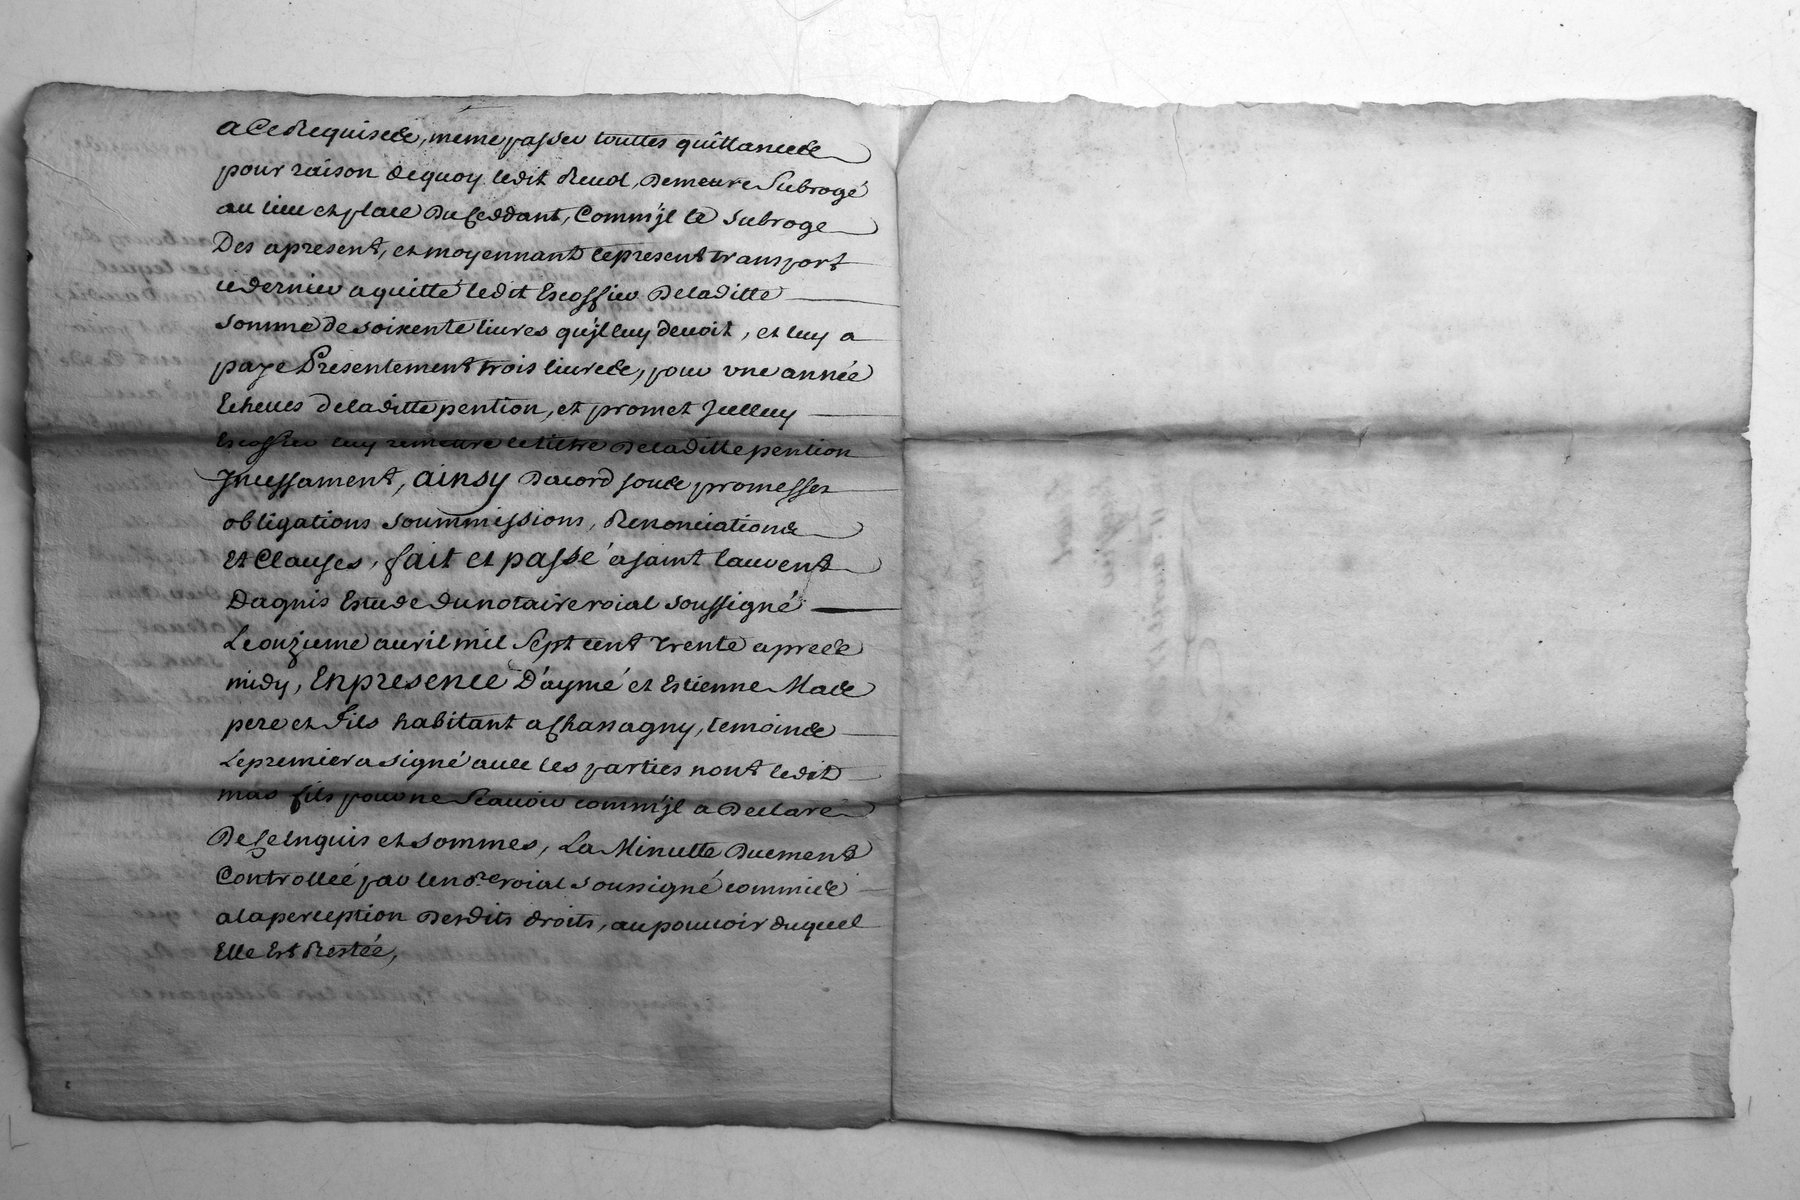 a Ce Requises, meme passer touttes quittances
pour raison dequoy ledit Revol, Demeure Subrogé
au lieu et place Du Ceddant, Comm'jl le Subroge
Des apresent, et moyennant lepresent transport
ce dernier a quitté ledit Escoffier Deladitte
somme de soixente livres qu'jl luy devoit, et luy a
paye Presentement trois livres, pour vne année
Echeues deladitte pention, et promet Jcelluy
Escoffier luy remettre le tiltre Deladitte pention
Jncessament, ainsy Dacord sous promesses
obligations soummissions, Renonciations
Et Clauses, fait et passé a saint laurent
Dagnis Estude du notaire roial soussigné
Le onzieme avril mil Sept cent trente apres
midy, En presence D'aymé et Estienne Mas
pere et Fils habitant a Chassagny, temoins
Le premier a signé avec les parties nont ledit
mas fils pour ne Scavoir comm'jl a Declaré
De Ce Enquis et sommes, La Minutte Duement
Controlleé par le no.re roial soussigné commis
a la perception Desdits droits, au pouvoir duquel
Elle Est Restée,